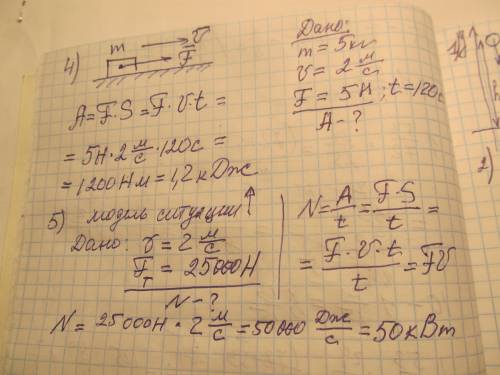 4) m → v⃗
F⃗
Дано:
m = 5кг
v = 2 м/с
F = 5Н; t = 120с
A - ?
A = F·S = F·v·t =
= 5Н · 2 м/с · 120с =
= 1200 Нм = 1,2 кДж
5) модель ситуации ↑
Дано: v = 2 м/с
Fт = 25000Н
N - ?
N = A/t = F·S/t =
= F·v·t/t = Fv
N = 25000Н · 2 м/с = 50000 Дж/с = 50кВт
2)